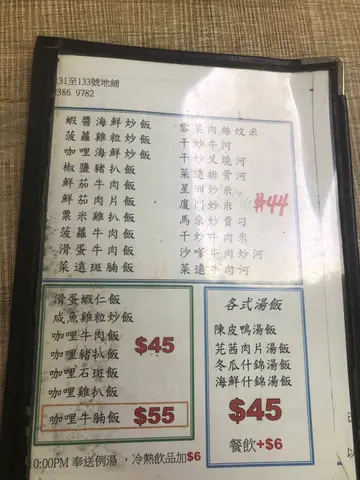 31至133號地舖
386 9782
蝦醬海鮮炒飯
菠蘿雞粒炒飯
咖哩海鮮炒飯
椒鹽豬扒飯
鮮茄牛肉飯
鮮茄肉片飯
粟米雞扒飯
菠蘿牛肉飯
滑蛋牛肉飯
菜遠斑腩飯
雪菜肉絲炆米
干炒牛河
干炒叉燒河
菜遠排骨河
星洲炒米
廈門炒米
馬來炒貴刁
干炒牛肉米
沙嗲牛肉炒河
菜遠牛肉河
$44
滑蛋蝦仁飯
咸魚雞粒炒飯
咖哩牛肉飯
咖哩豬扒飯
咖哩石斑飯
咖哩雞扒飯
$45
咖哩牛腩飯 $55
各式湯飯
陳皮鴨湯飯
芫茜肉片湯飯
冬瓜什錦湯飯
海鮮什錦湯飯
$45
餐飲+$6
10:00PM 奉送例湯，冷熱飲品加$6